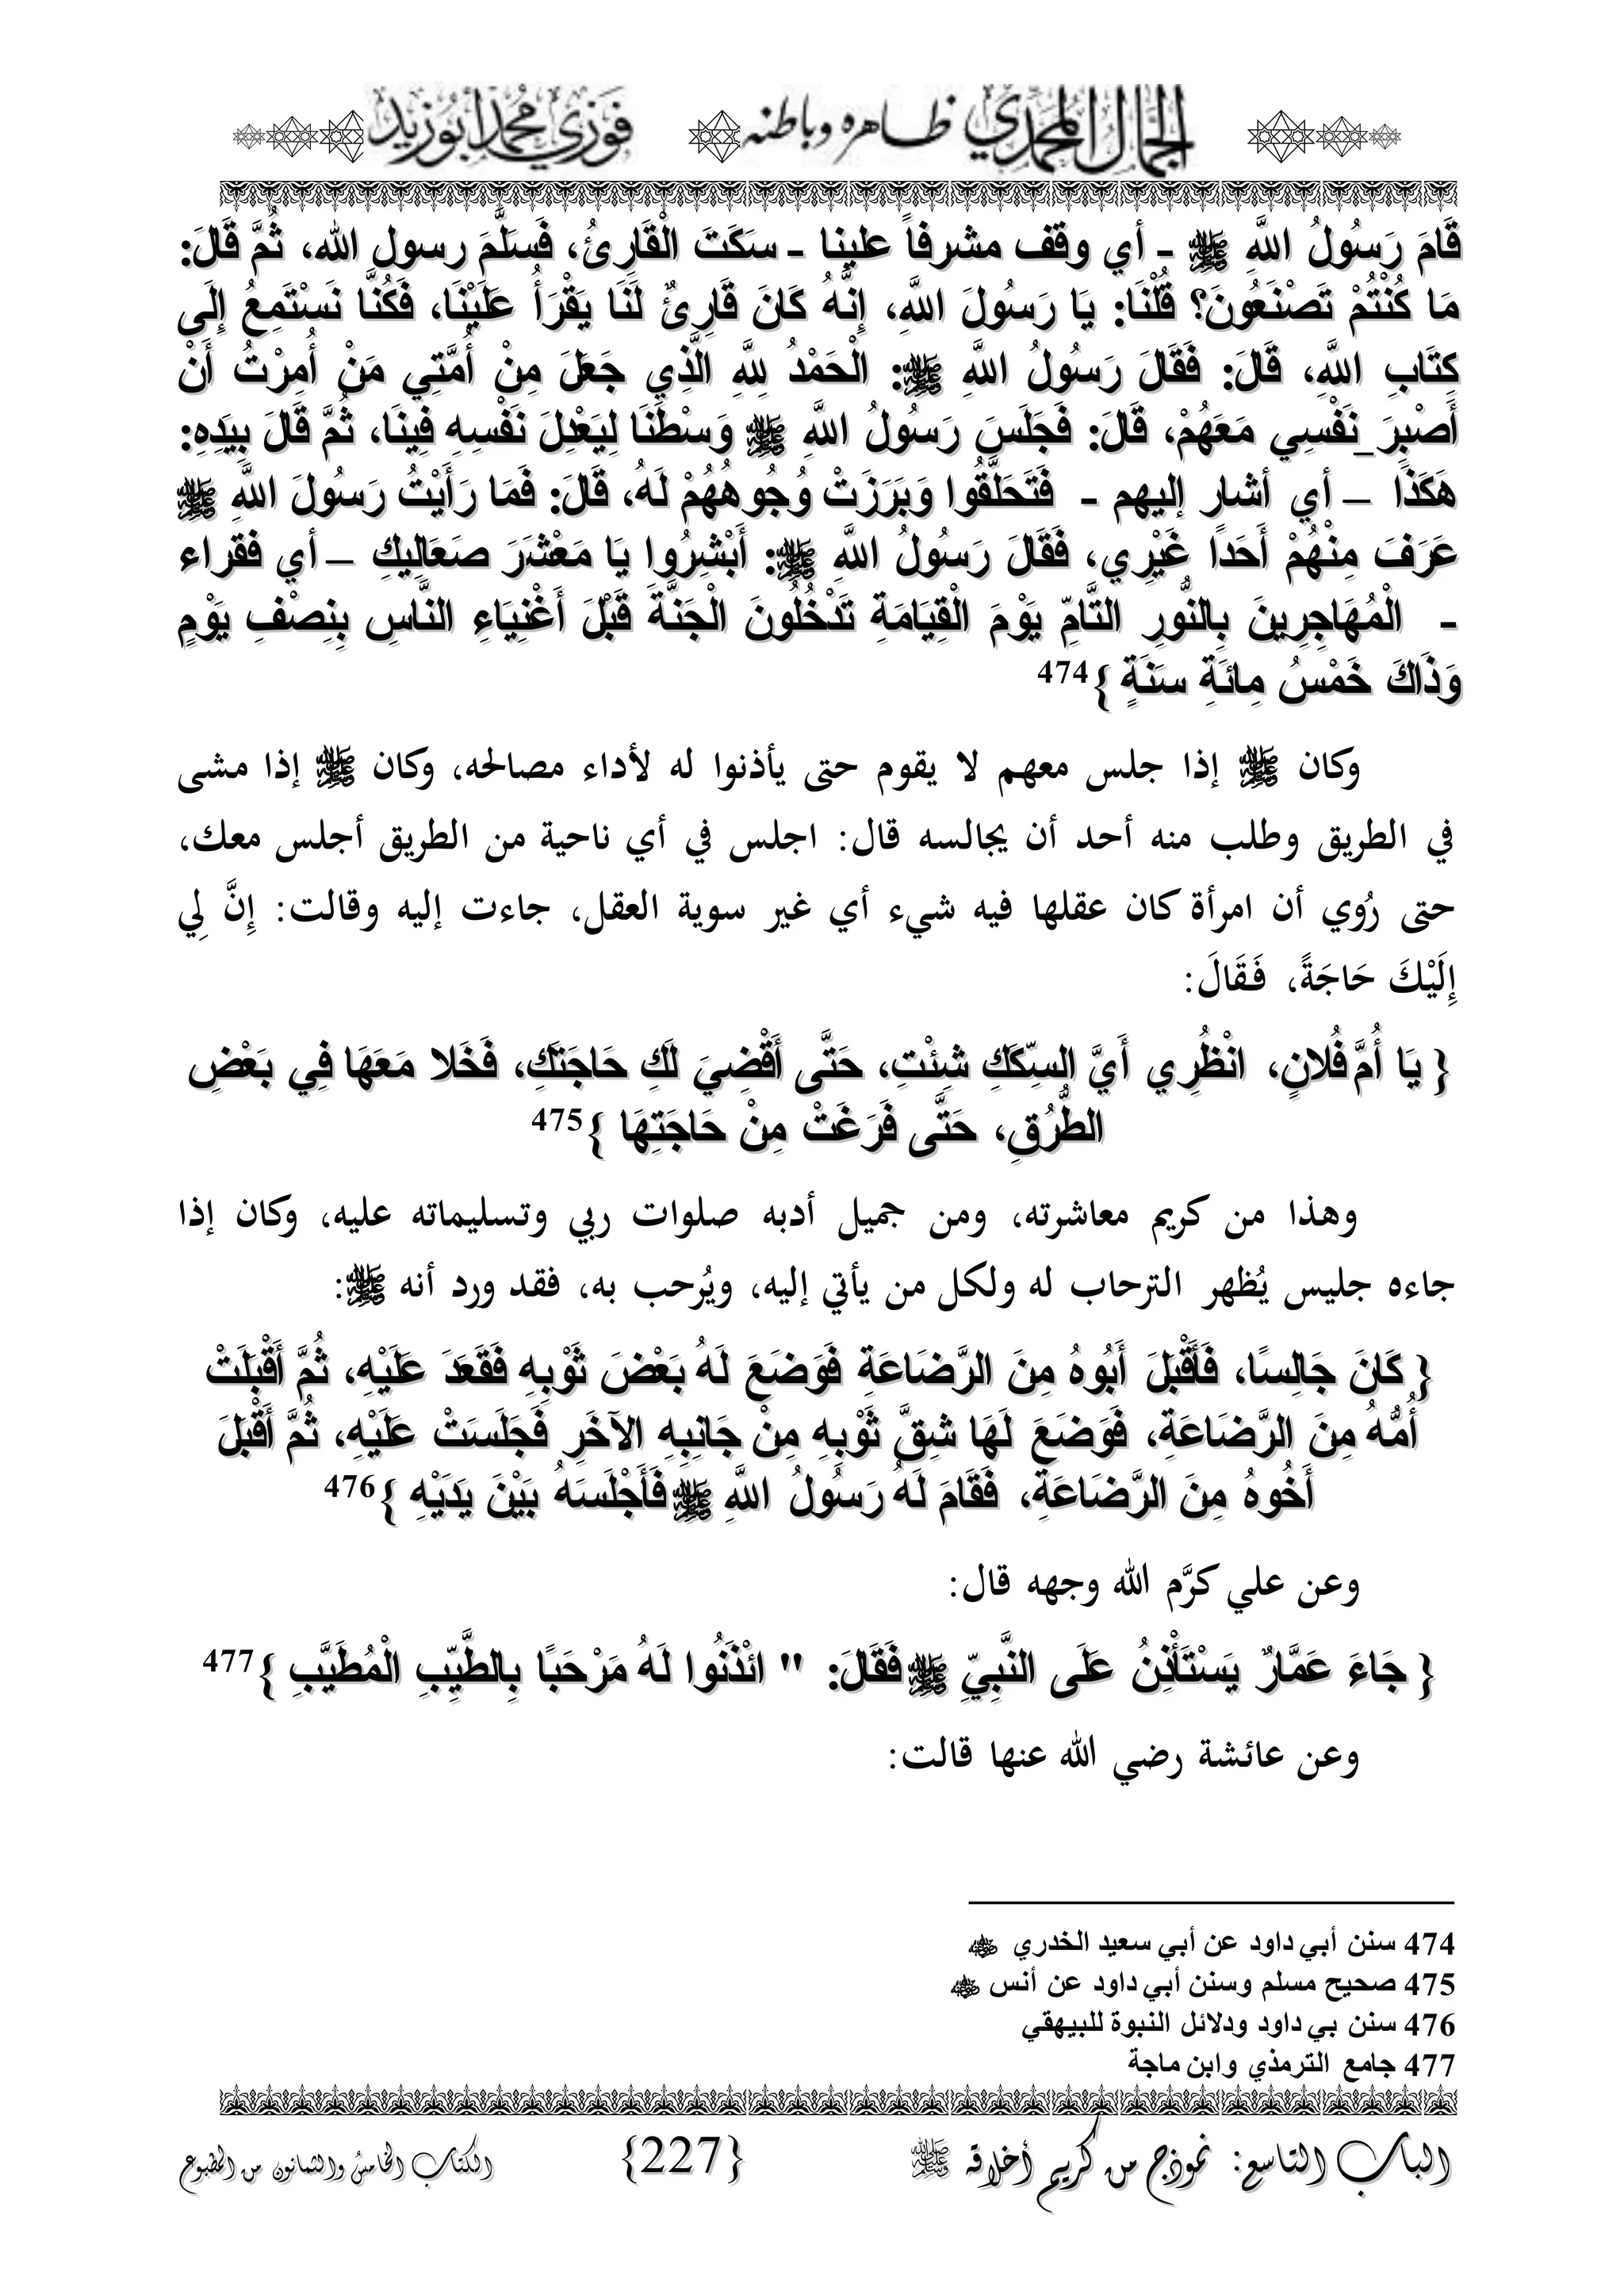 الجمال المحمدي ظاهره وباطنه فوزي محمد أبوزيد
قَامَ رَسُولُ اللَّهِ ﷺ - أي وقف مشرفاً علينا - سَكَتَ الْقَارِئُ، فَسَلَّمَ رسول الله، ثُمَّ قَالَ:
مَا كُنْتُمْ تَصْنَعُونَ؟ قُلْنَا: يَا رَسُولَ اللَّهِ، إِنَّهُ كَانَ قَارِئٌ لَنَا يَقْرَأُ عَلَيْنَا، فَكُنَّا نَسْتَمِعُ إِلَى
كِتَابِ اللَّهِ، قَالَ: فَقَالَ رَسُولُ اللَّهِ ﷺ: الْحَمْدُ لِلَّهِ الَّذِي جَعَلَ مِنْ أُمَّتِي مَنْ أُمِرْتُ أَنْ
أَصْبِرَ_نَفْسِي مَعَهُمْ، قَالَ: فَجَلَسَ رَسُولُ اللَّهِ ﷺ وَسْطَنَا لِيَعْدِلَ نَفْسِهِ فِينَا، ثُمَّ قَالَ بِيَدِهِ:
هَكَذَا – أي أشار إليهم - فَتَحَلَّقُوا وَبَرَزَتْ وُجُوهُهُمْ لَهُ، قَالَ: فَمَا رَأَيْتُ رَسُولَ اللَّهِ ﷺ
عَرَفَ مِنْهُمْ أَحَدًا غَيْرِي، فَقَالَ رَسُولُ اللَّهِ ﷺ: أَبْشِرُوا يَا مَعْشَرَ صَعَالِيكِ – أي فقراء
- الْمُهَاجِرِينَ بِالنُّورِ التَّامِّ يَوْمَ الْقِيَامَةِ تَدْخُلُونَ الْجَنَّةَ قَبْلَ أَغْنِيَاءِ النَّاسِ بِنِصْفِ يَوْمٍ
وَذَاكَ خَمْسُ مِائَةِ سَنَةٍ } 474
وكان ﷺ إذا جلس معهم لا يقوم حتى يأذنوا له لأداء مصالحه، وكان ﷺ إذا مشى
في الطريق وطلب منه أحد أن يجالسه قال: اجلس في أي ناحية من الطريق أجلس معك،
حتى رُوي أن امرأة كان عقلها فيه شيء أي غير سوية العقل، جاءت إليه وقالت: إِنَّ لِي
إِلَيْكَ حَاجَةً، فَقَالَ:
{ يَا أُمَّ فُلَانٍ، انْظُرِي أَيَّ السِّكَكِ شِئْتِ، حَتَّى أَقْضِيَ لَكِ حَاجَتَكِ، فَخَلا مَعَهَا فِي بَعْضِ
الطُّرُقِ، حَتَّى فَرَغَتْ مِنْ حَاجَتِهَا } 475
وهذا من كريم معاشرته، ومن جميل أدبه صلوات ربي وتسليماته عليه، وكان إذا
جاءه جليس يُظهر الترحاب له ولكل من يأتي إليه، ويُرحب به، فقد ورد أنه ﷺ:
{ كَانَ جَالِسًا، فَأَقْبَلَ أَبُوهُ مِنَ الرَّضَاعَةِ فَوَضَعَ لَهُ بَعْضَ ثَوْبِهِ فَقَعَدَ عَلَيْهِ، ثُمَّ أَقْبَلَتْ
أُمُّهُ مِنَ الرَّضَاعَةِ، فَوَضَعَ لَهَا شِقَّ ثَوْبِهِ مِنْ جَانِبِهِ الآخَرِ فَجَلَسَتْ عَلَيْهِ، ثُمَّ أَقْبَلَ
أَخُوهُ مِنَ الرَّضَاعَةِ، فَقَامَ لَهُ رَسُولُ اللَّهِ ﷺ فَأَجْلَسَهُ بَيْنَ يَدَيْهِ } 476
وعن علي كرَّم الله وجهه قال:
{ جَاءَ عَمَّارٌ يَسْتَأْذِنُ عَلَى النَّبِيِّ ﷺ فَقَالَ: " ائْذَنُوا لَهُ مَرْحَبًا بِالطَّيِّبِ الْمُطَيَّبِ } 477
وعن عائشة رضي الله عنها قالت:
474 سنن أبي داود عن أبي سعيد الخدري ﷺ
475 صحيح مسلم وسنن أبي داود عن أنس ﷺ
476 سنن بي داود ودلائل النبوة للبيهقي
477 جامع الترمذي وابن ماجة
الباب التاسع: نموذج من كريم أخلاقه ﷺ {227} الكتاب الخامس والثمانون من المطبوع